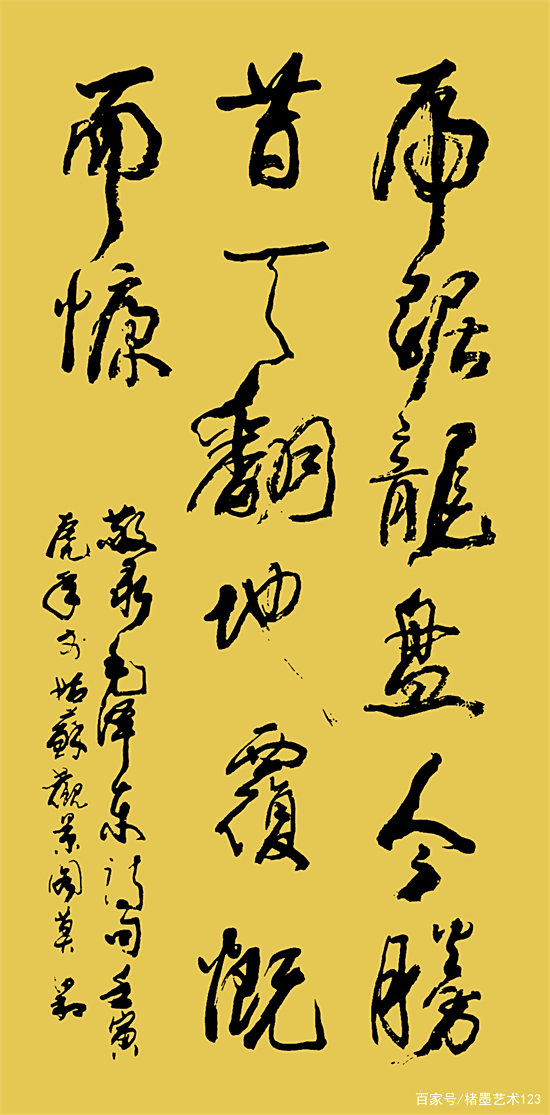 虎踞龍盤今勝
昔天翻地覆慨
而慷
敬录毛泽东诗句壬寅
虎年于姑蘇觀景阁莫
百家号/楮墨艺术123